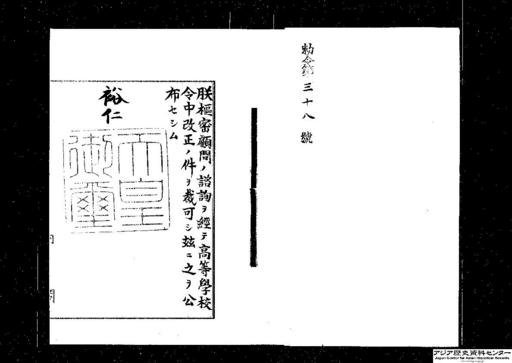 勅令第三十八號
朕樞密顧問ノ諮詢ヲ經テ高等學校
令中改正ノ件ヲ裁可シ玆ニ之ヲ公
布セシム
裕仁
天皇
御璽
アジア歴史資料センター
Japan Center for Asian Historical Records